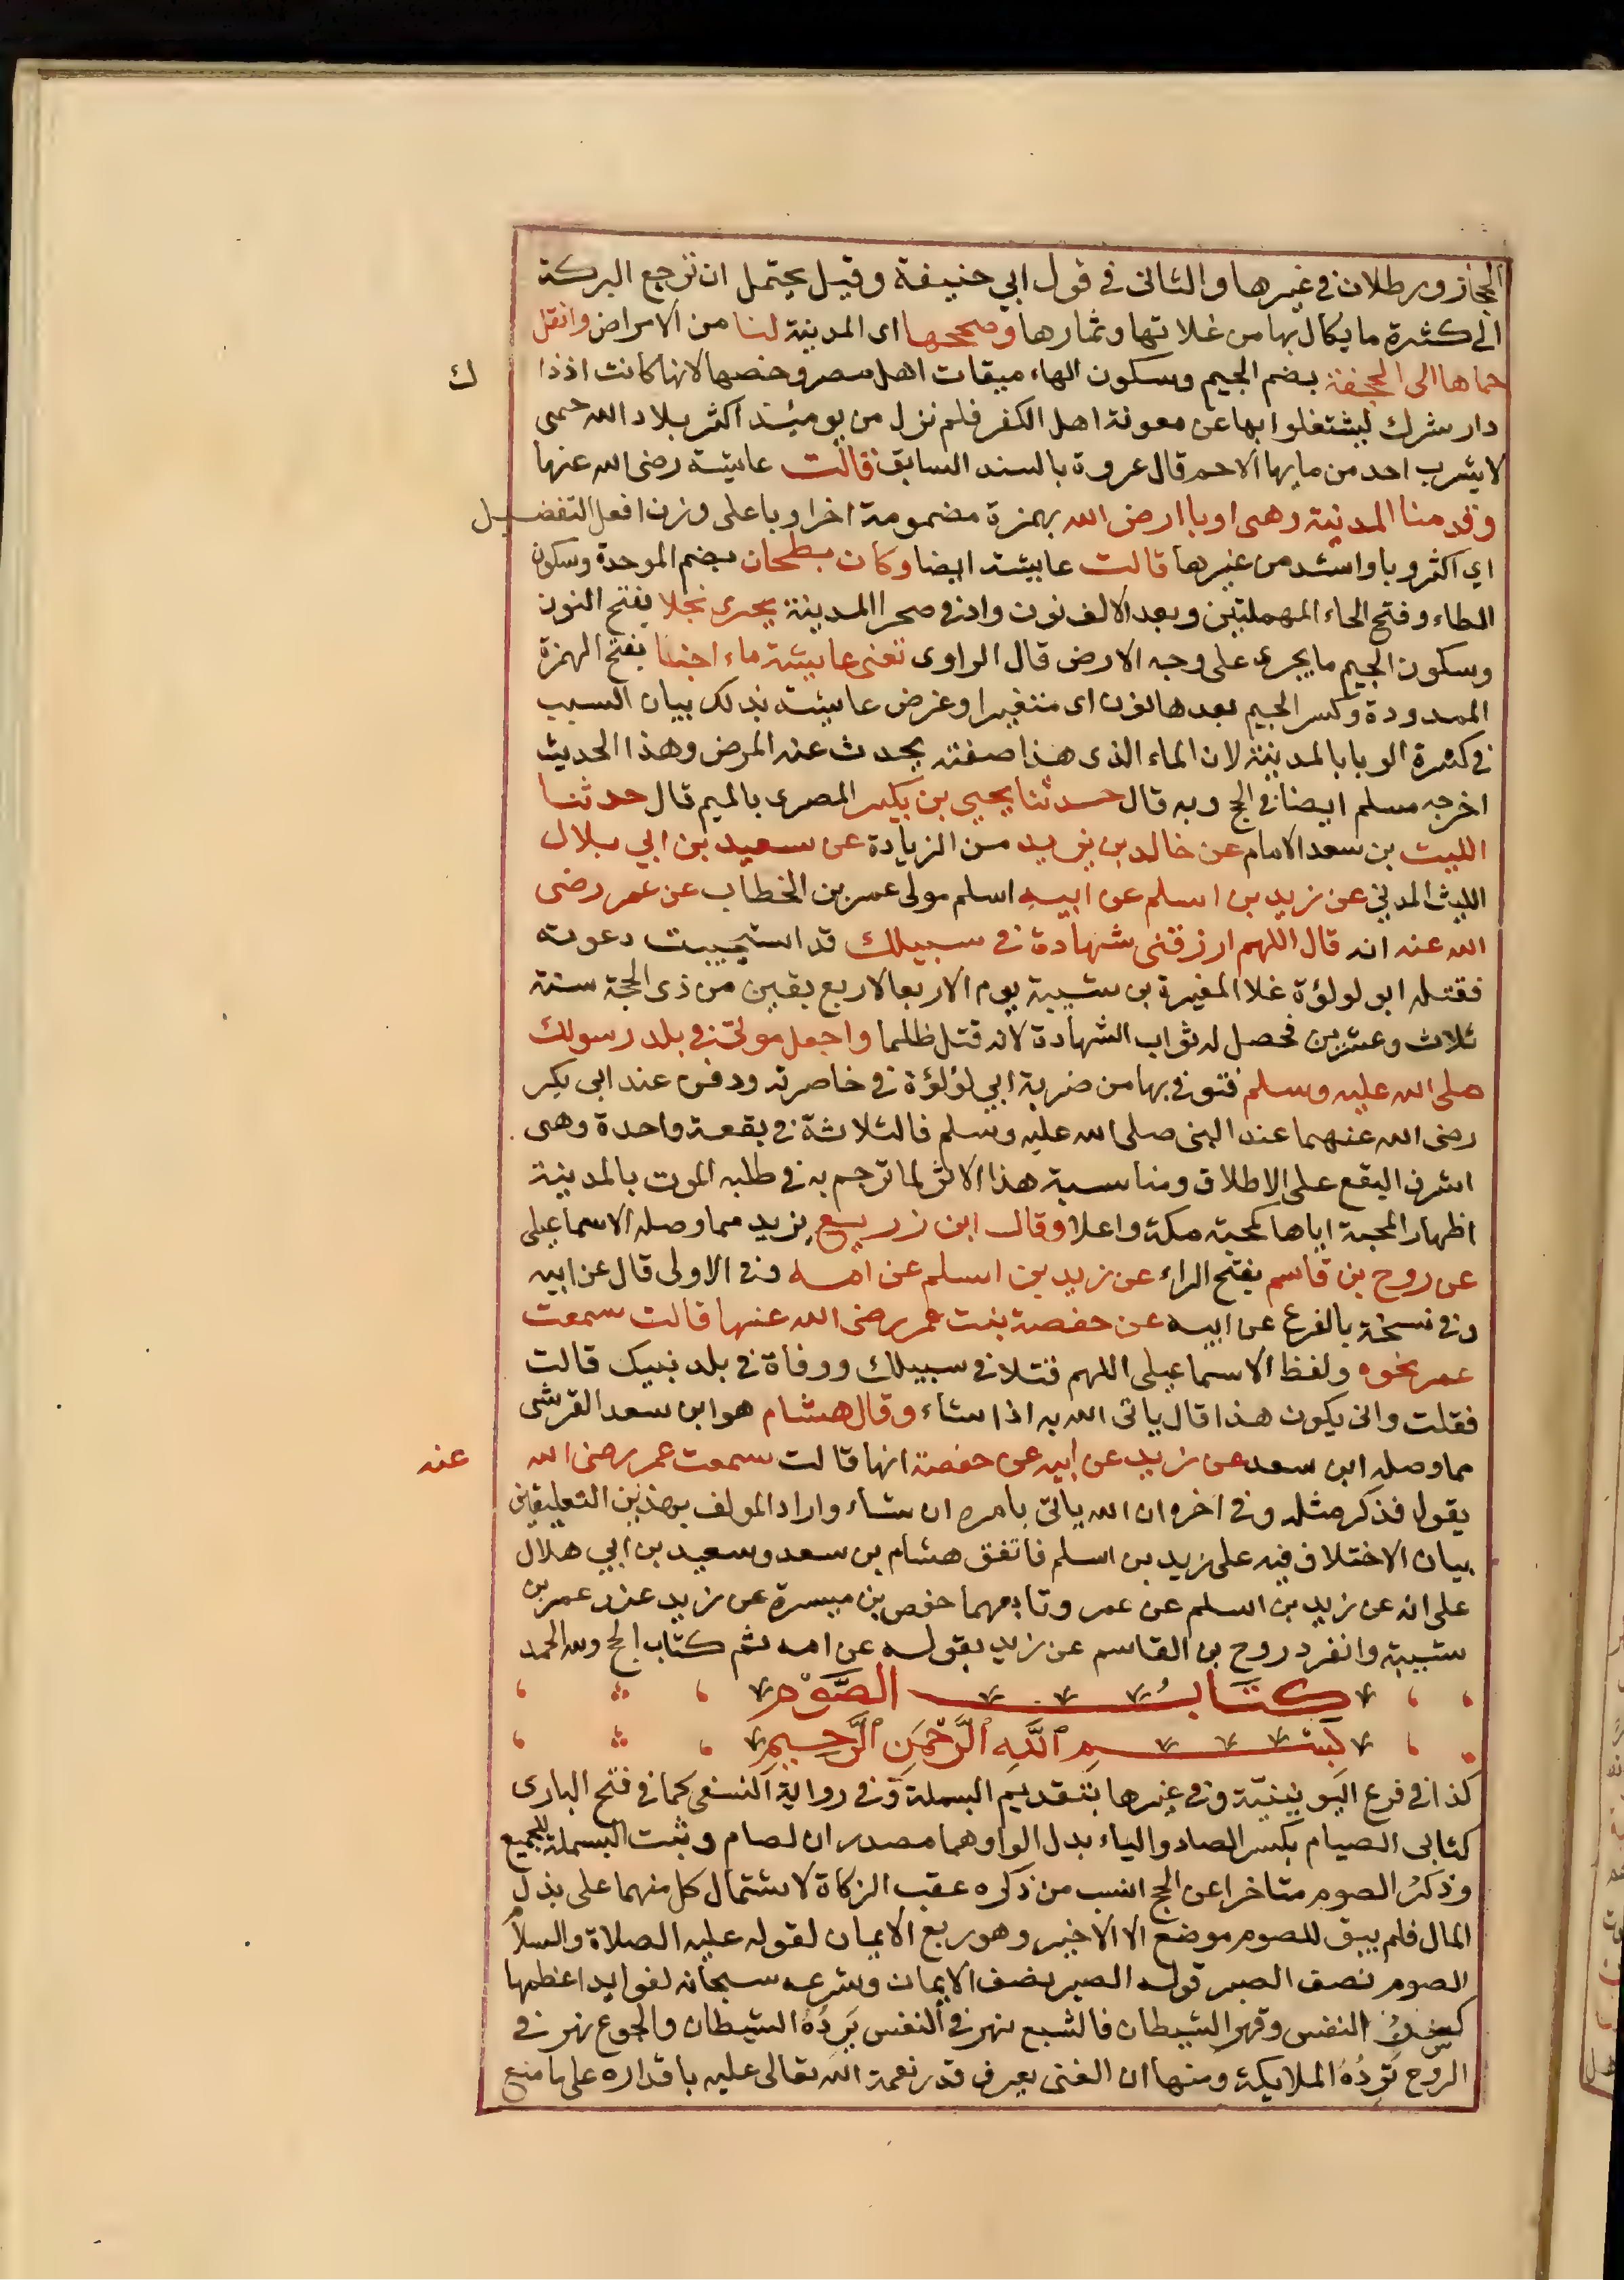 الحجاز ورطلان في غيرها والثاني في قول ابي حنيفة وقيل يحتمل ان ترجع البركة
الى كثرة ما يكال بها من غلاتها وثمارها وصححها اى المدينة لنا من الامراض وانقل
حماها الى الجحفة بضم الجيم وسكون الهاء ميقات اهل مصر وخصها لانها كانت اذذا
ك
دار شرك ليشتغلوا بها عن معونة اهل الكفر فلم نزل من يومئذ اكثر بلاد الله حمى
لا يشرب احد من مايها الا حم قال عروة بالسند السابق قالت عايشة رضى الله عنها
وقدمنا المدينة وهى اوبا ارض الله بهمزة مضمومة اخراوبا على وزن افعل التفضيل
اي اكثر وبا واشد من غيرها قالت عايشة ايضا وكان بطحان بضم الموحدة وسكون
الطاء وفتح الحاء المهملتين وبعد الالف نون واد في صحرا المدينة يجرى نجلا بفتح النون
وسكون الجيم ما يجرى على وجه الارض قال الراوى تعنى عايشة ماء اجنا بفتح الهمزة
الممدودة وكسر الجيم بعدها نون اى متغيرا وغرض عايشة بذلك بيان السبب
في كثرة الوبا بالمدينة لان الماء الذى هذا صفته يحدث عنه المرض وهذا الحديث
اخرجه مسلم ايضا في الحج وبه قال حدثنا يحيى بن بكير المصرى بالميم قال حدثنا
الليث بن سعد الامام عن خالد بن يزيد من الزيادة عن سعيد بن ابي بلال
الليث المدني عن زيد بن اسلم عن ابيه اسلم مولى عمر بن الخطاب عن عمر رضى
الله عنه انه قال اللهم ارزقنى شهادة في سبيلك قد استجيبت دعوته
فقتله ابو لولؤة غلا المغيرة بن شيبة يوم الاربعا لاربع بقين من ذى الحجة سنة
ثلاث وعشرين فحصل له ثواب الشهادة لانه قتل ظلما واجعل موتى في بلد رسولك
صلى الله عليه وسلم فتوفي بها من ضربة ابي لؤلؤة في خاصرته ودفن عند ابى بكر
رضى الله عنهما عند النبى صلى الله عليه وسلم فالثلاثة في بقعة واحدة وهى
اشرف البقع على الاطلاق ومناسبة هذا الاثر لما ترجم به في طلبه الموت بالمدينة
اظهار المحبة اياها كمحبته مكة واعلا وقال ابن زريع يزيد مما وصله الاسماعيلى
عن روح بن قاسم بفتح الراء عن زيد بن اسلم عن امه وفى الاولى قال عن ابيه
وفي نسخة بالفرع عن ابيه عن حفصة بنت عمر رضى الله عنها قالت سمعت
عمر نحوه ولفظ الاسماعيلى اللهم قتلا في سبيلك ووفاة في بلد نبيك قالت
فقلت وانى يكون هذا قال ياتى الله به اذا شاء وقال هشام هو ابن سعد القرشى
مما وصله ابن سعد عن زيد عن ابيه عن حفصة انها قالت سمعت عمر رضى الله
عنه
يقول فذكر مثله وفي اخره ان الله ياتى بامره ان شاء واراد المولف بهذين التعليقين
بيان الاختلاف فيه على زيد بن اسلم فاتفق هشام بن سعد وسعيد بن ابي هلال
على انه عن زيد بن اسلم عن عمر وتابعهما حفص بن ميسرة عن زيد عند عمر بن
شيبة وانفرد روح بن القاسم عن زيد بقوله عن امه تم كتاب الحج ولله الحمد
كتابُ الصَّوْم
بِسْمِ اللَّهِ الرَّحْمَنِ الرَّحِيمِ
كذا في فرع اليونينيّة وفي غيرها بتقديم البسملة وفي رواية النسفى كما في فتح البارى
كتابى الصيام بكسر الصاد والياء بدل الواو وهما مصدران لصام وثبت البسملة للجميع
وذكرُ الصوم متاخرا عن الحج انسب من ذكره عقب الزكاة لاشتمال كل منهما على بذل
المال فلم يبق للصوم موضع الا الاخير وهو ربع الايمان لقوله عليه الصلاة والسلام
الصوم نصف الصبر قوله الصبر نصف الايمان وشرعه سبحانه لفوايد اعظمها
كسر النفس وقهر الشيطان فالشبع نهر في النفس يَرِدُهُ الشيطان والجوع نهر في
الروح تَرِدُهُ الملايكة ومنها ان الغنى يعرف قدر نعمة الله تعالى عليه باقداره على ما منع